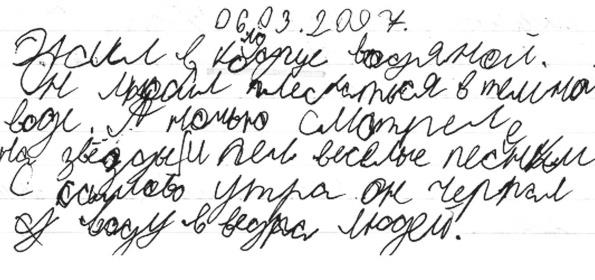 06.03.2007.
Жил в колодце водяной.
Он любил плескаться в темной
воде. А ночью смотрел
на звёзды и пел веселые песенки
С самого утра он черпал
воду в ведра людей.